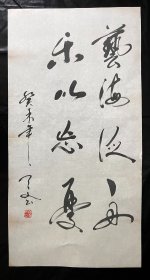 藝海泛舟
乐以忘憂
癸未年